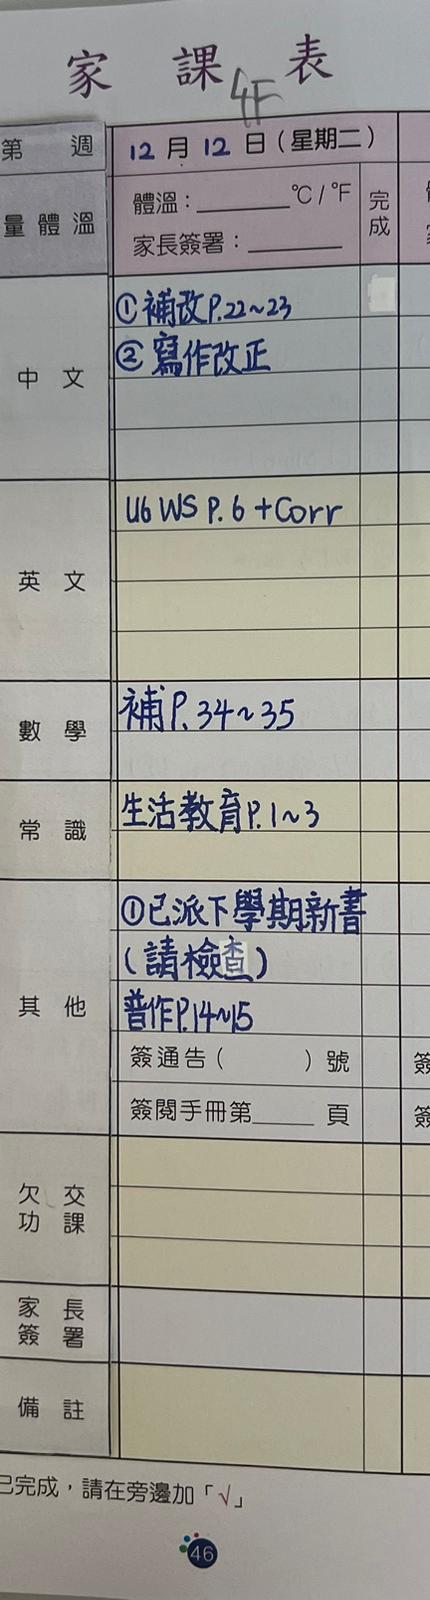 家 課 表
4F
第 週
12 月 12 日（星期二）
量體溫
體溫：______℃/℉
家長簽署：______
完成
中 文
①補改P.22~23
②寫作改正
英 文
U6 WS P.6 +Corr
數 學
補P.34~35
常 識
生活教育P.1~3
其 他
①已派下學期新書
(請檢查)
普作P.14~15
簽通告（ ）號
簽閱手冊第____頁
簽
簽
欠 交
功 課
家 長
簽 署
備 註
已完成，請在旁邊加「√」
46